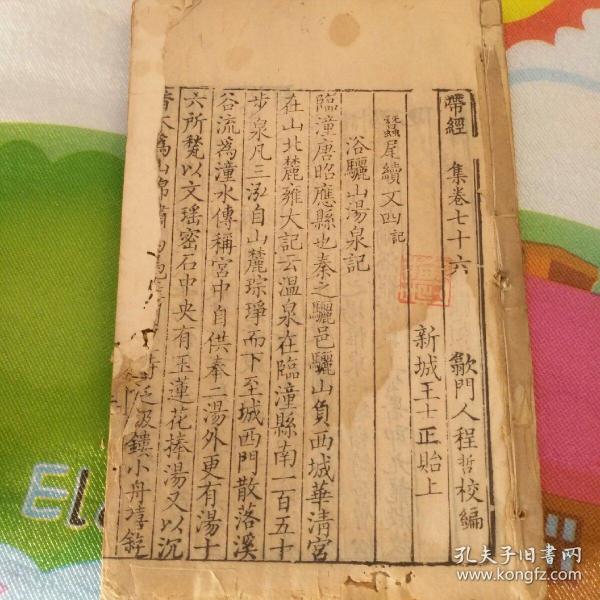 帶經　集卷七十六
歙門人程哲校編
新城王士正貽上
蠶尾續文四記
浴驪山湯泉記
臨潼唐昭應縣也秦之驪邑驪山負西城華淸宮
在山北麓雍大記云溫泉在臨潼縣南一百五十
步泉凡三泓自山麓琮琤而下至城西門散落溪
谷流為潼水傳稱宮中自供奉二湯外更有湯十
六所甃以文瑤密石中央有玉蓮花捧湯又以沉
香
鏤小舟
Ela
孔夫子旧書网
www.kongfz.com